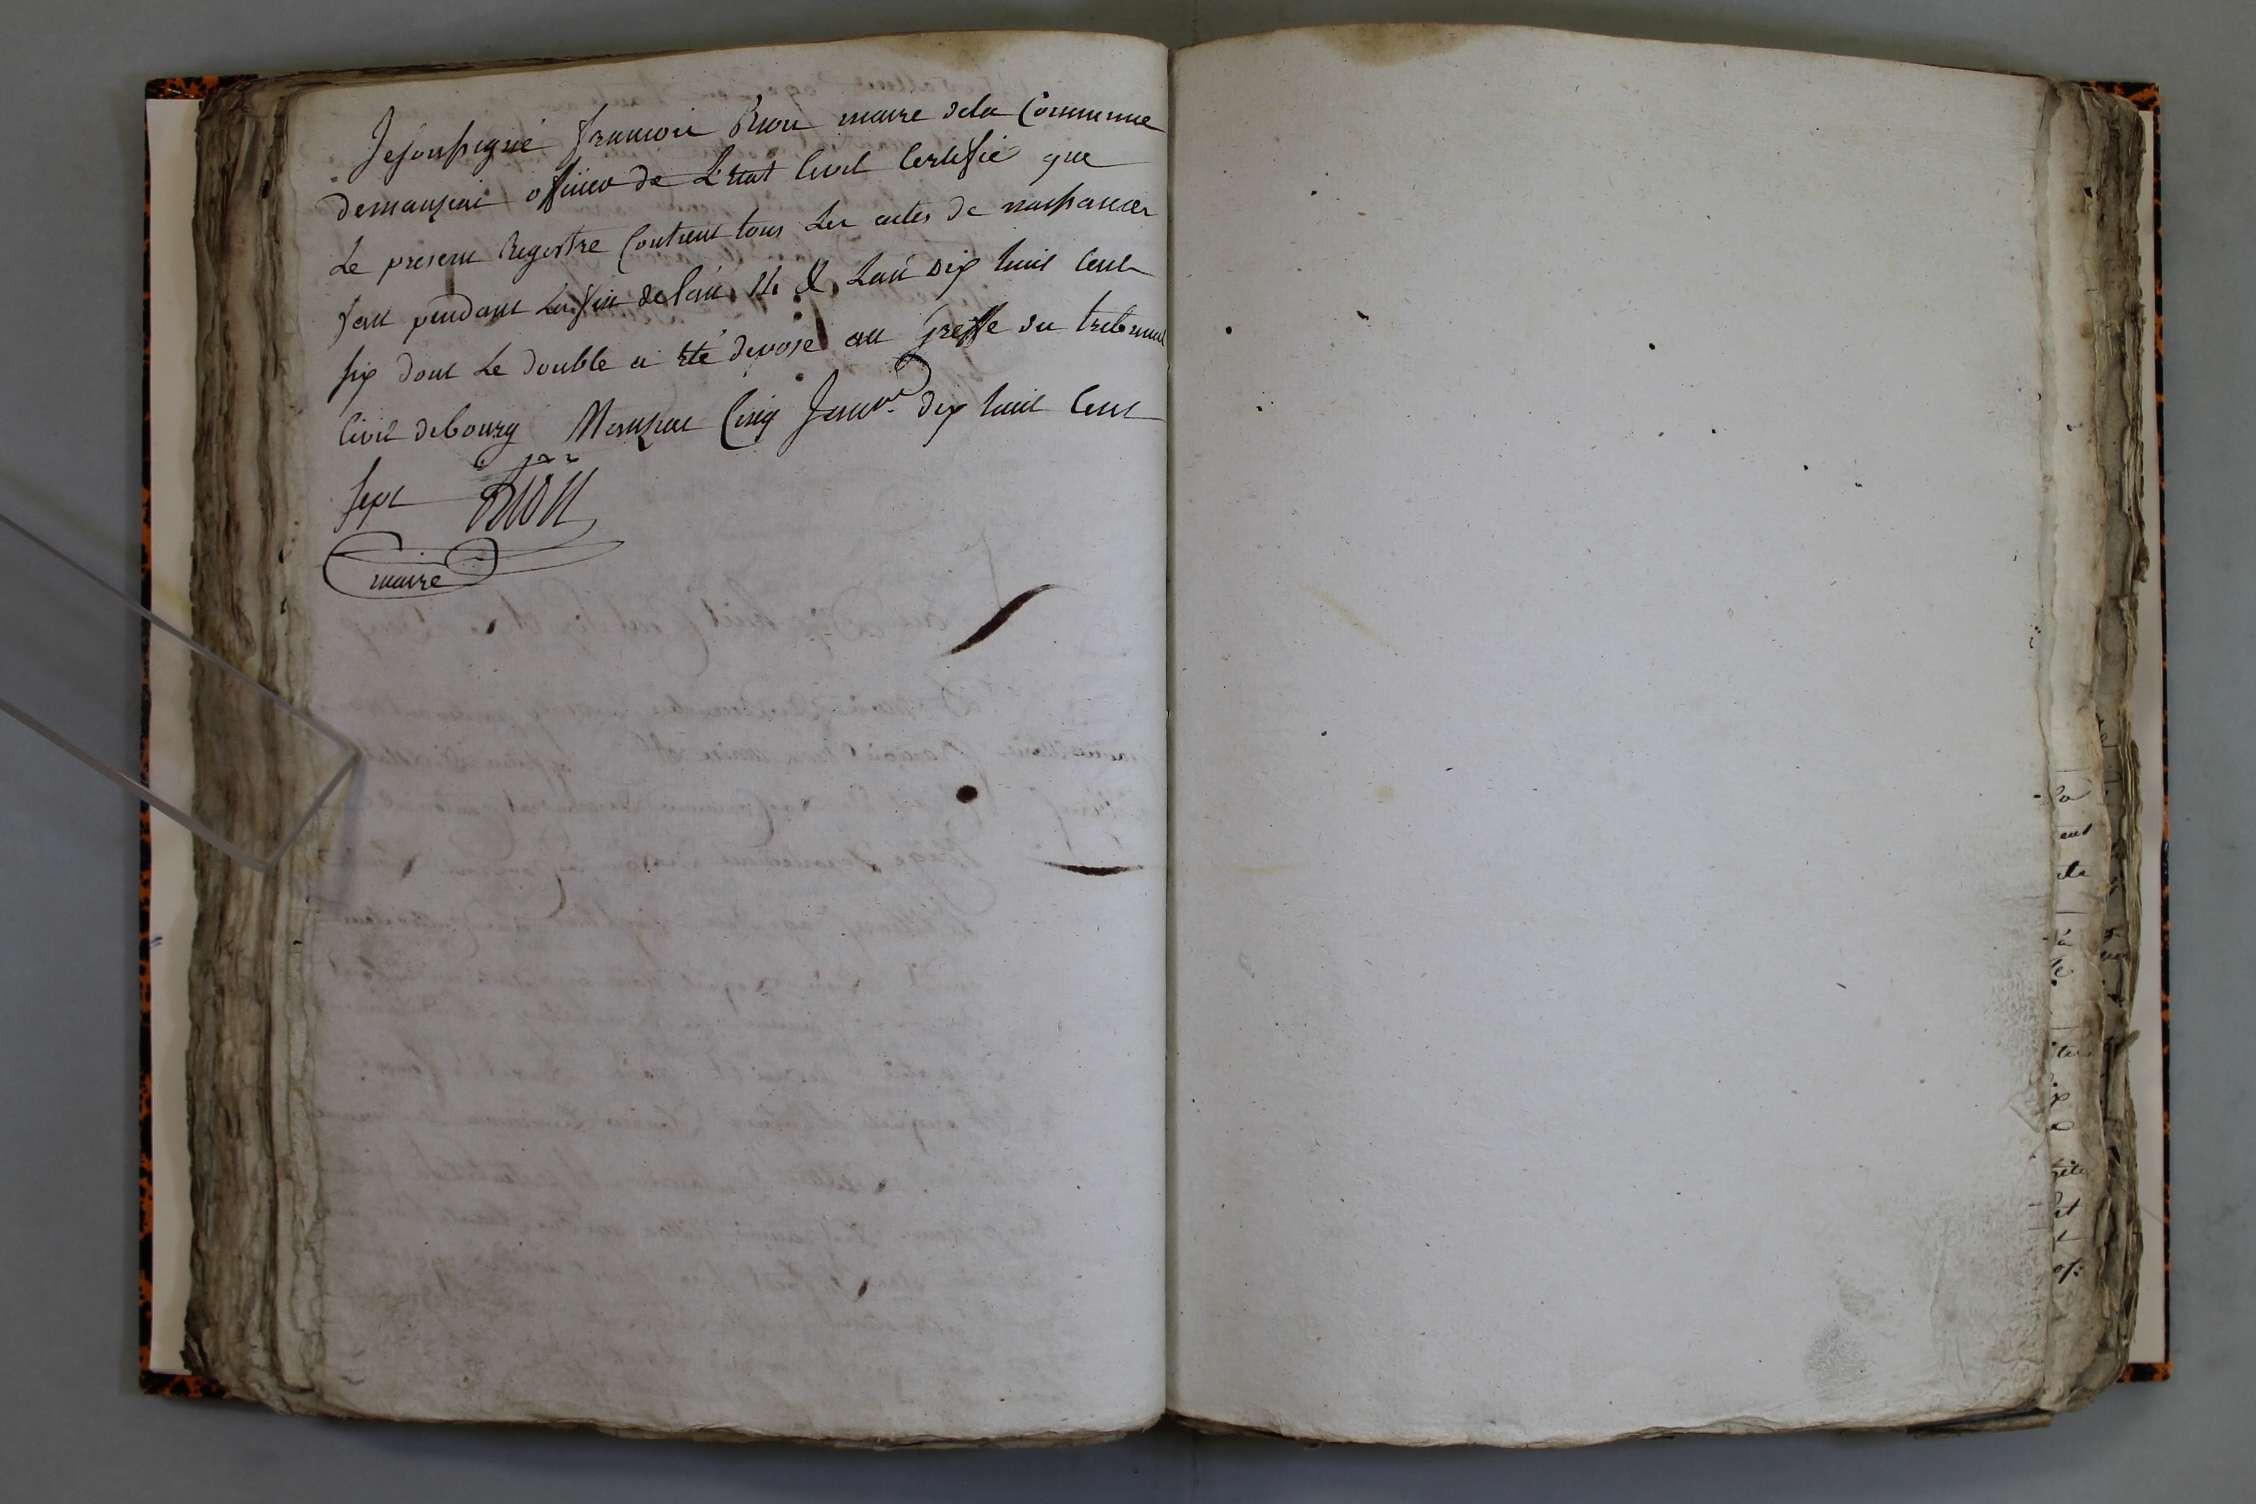 Jesousigné françois Bron maire dela Commune
demanziat officier de L'etat Civil Certifie que
Le present Registre Contient tous Les actes de naissances
fait pendant Lafin delan 14 & Lan dix huit Cent
six dont Le double a eté deposé au Greffe du tribunal
Civil debourg Manziat Cinq Janv.er dix huit Cent
sept
maire